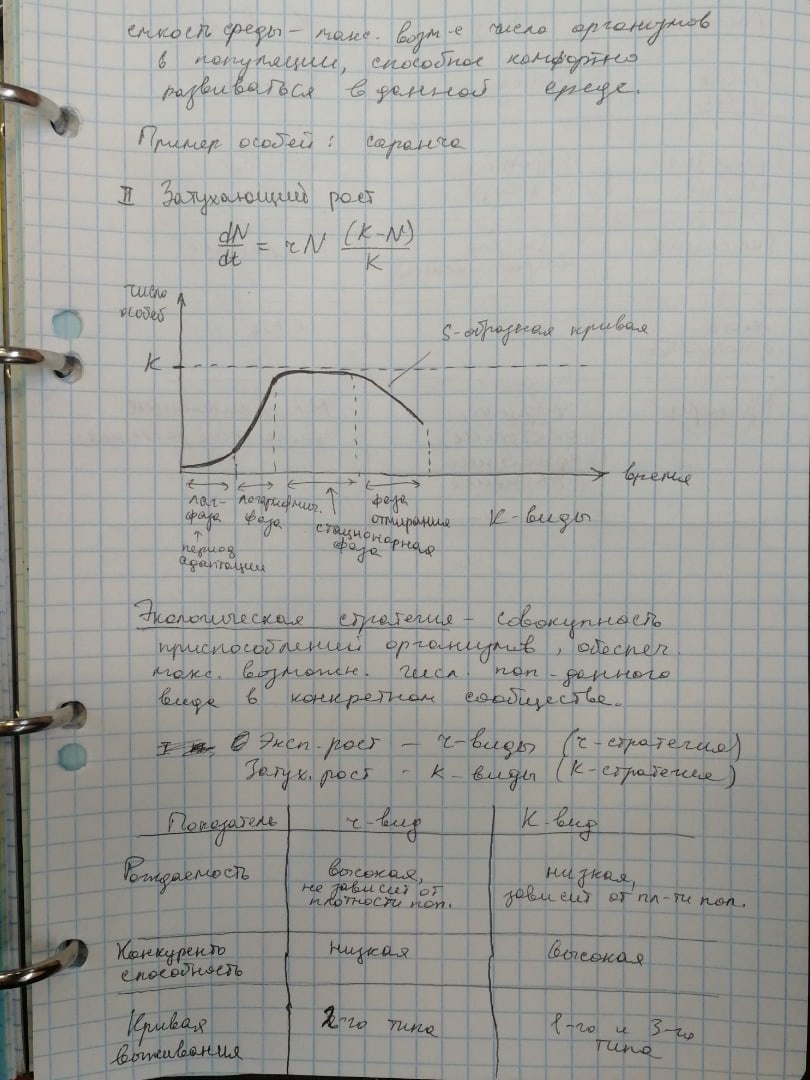 емкость среды – макс. возм-е число организмов
в популяции, способное комфортно
развиваться в данной среде.
Пример особей: саранча
II Затухающий рост
dN/dt = rN (K-N)/K
число
особей
S-образная кривая
K
время
лаг-
фаза
период
адаптации
логарифмич.
фаза
стационарная
фаза
фаза
отмирания
K-виды
Экологическая стратегия – совокупность
приспособлений организмов, обеспеч.
макс. возможн. числ. поп-данного
вида в конкретном сообществе.
Эксп. рост – r-виды (r-стратегия)
Затух. рост - K-виды (K-стратегия)
Показатель r-вид K-вид
Рождаемость высокая, низкая,
не зависит от зависит от пл-ти поп.
плотности поп.
Конкуренто низкая высокая
способность
Кривая 2-го типа 1-го и 3-го
выживания типа